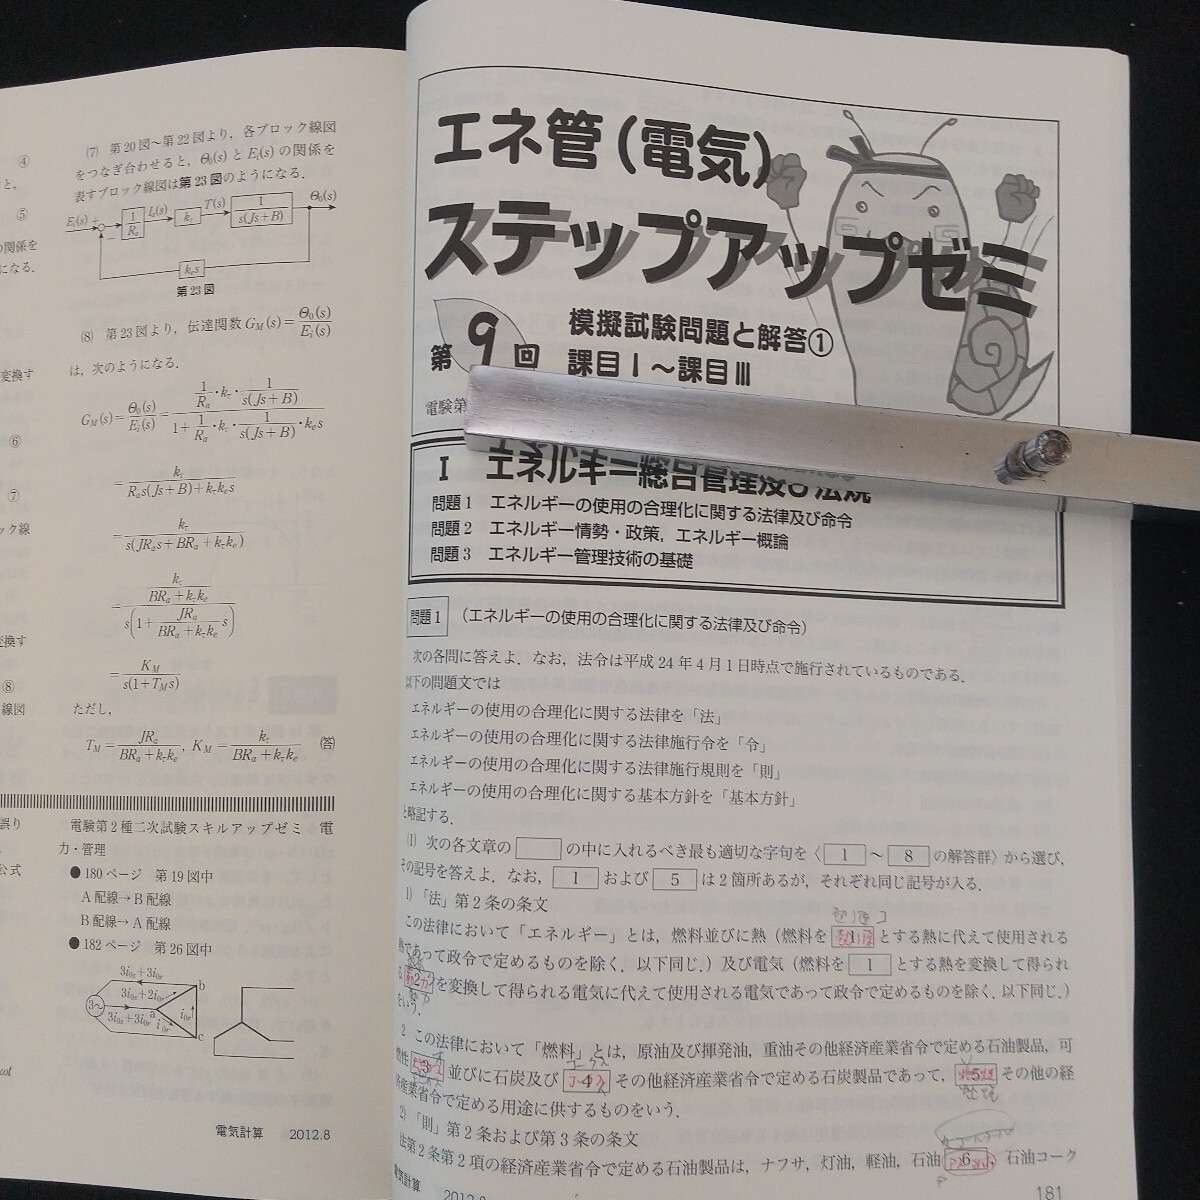 ④
と，
⑤
の関係を
になる．
変換す
⑥
⑦
ック線
変換す
⑧
線図
誤り
公式
ωt
(7) 第20図～第22図より，各ブロック線図
をつなぎ合わせると，Θ₀(s)とEᵢ(s)の関係を
表すブロック線図は第23図のようになる．
Eᵢ(s) + − 1/Rₐ Iₐ(s) kτ T(s) 1/s(Js+B) Θ₀(s)
kₑs
第23図
(8) 第23図より，伝達関数 G_M(s)=Θ₀(s)/Eᵢ(s)
は，次のようになる．
G_M(s)=Θ₀(s)/Eᵢ(s)=(1/Rₐ・kτ・1/s(Js+B))/(1+1/Rₐ・kτ・1/s(Js+B)・kₑs)
=kτ/(Rₐs(Js+B)+kτkₑs)
=kτ/(s(JRₐs+BRₐ+kτkₑ))
=(kτ/(BRₐ+kτkₑ))/(s(1+JRₐ/(BRₐ+kτkₑ) s))
=K_M/(s(1+T_Ms))
ただし，
T_M=JRₐ/(BRₐ+kτkₑ)，K_M=kτ/(BRₐ+kτkₑ) (答)
電験第2種二次試験スキルアップゼミ 電
力・管理
●180ページ 第19図中
A配線→B配線
B配線→A配線
●182ページ 第26図中
3i₀ₛ+3i₀ᵣ
3i₀ₛ+2i₀ᵣ
b
3~
a
i₀ᵣ
3i₀ₛ+3i₀ᵣ
i₀ᵣ
c
電気計算 2012.8
エネ管（電気）
ステップアップゼミ
第9回
模擬試験問題と解答①
課目Ⅰ～課目Ⅲ
電験第
Ⅰ エネルギー総合管理及び法規
問題1 エネルギーの使用の合理化に関する法律及び命令
問題2 エネルギー情勢・政策，エネルギー概論
問題3 エネルギー管理技術の基礎
問題1 （エネルギーの使用の合理化に関する法律及び命令）
次の各問に答えよ．なお，法令は平成24年4月1日時点で施行されているものである．
以下の問題文では
エネルギーの使用の合理化に関する法律を「法」
エネルギーの使用の合理化に関する法律施行令を「令」
エネルギーの使用の合理化に関する法律施行規則を「則」
エネルギーの使用の合理化に関する基本方針を「基本方針」
と略記する．
(1) 次の各文章の　　の中に入れるべき最も適切な字句を〈 1 ～ 8 の解答群〉から選び，
その記号を答えよ．なお， 1 および 5 は2箇所あるが，それぞれ同じ記号が入る．
1)「法」第2条の条文
この法律において「エネルギー」とは，燃料並びに熱（燃料を 1 とする熱に代えて使用される
熱であって政令で定めるものを除く．以下同じ．）及び電気（燃料を 1 とする熱を変換して得られ
る 2 を変換して得られる電気に代えて使用される電気であって政令で定めるものを除く．以下同じ．）
をいう．
2 この法律において「燃料」とは，原油及び揮発油，重油その他経済産業省令で定める石油製品，可
燃性 3 並びに石炭及び 4 その他経済産業省令で定める石炭製品であって， 5 その他の経
済産業省令で定める用途に供するものをいう．
2)「則」第2条および第3条の条文
法第2条第2項の経済産業省令で定める石油製品は，ナフサ，灯油，軽油，石油 6 ，石油コーク
電気計算 2012.8
181